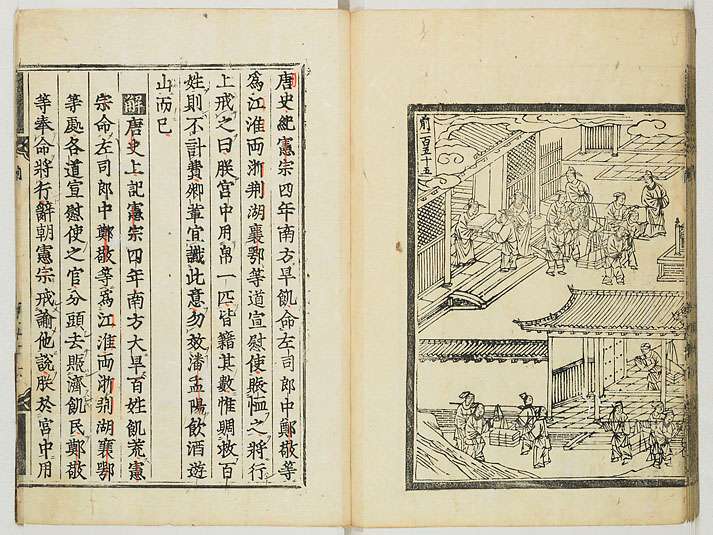 前一百五十五
唐史紀憲宗四年南方旱飢命左司郎中鄭敬等
爲江淮兩浙荆湖襄鄂等道宣慰使賑恤之將行
上戒之曰朕宮中用帛一匹皆籍其數惟賙救百
姓則不計費卿輩宜識此意勿效潘孟陽飲酒遊
山而已
解唐史上記憲宗四年南方大旱百姓飢荒憲
宗命左司郎中鄭敬等爲江淮兩浙荆湖襄鄂
等處各道宣慰使之官分頭去賑濟飢民鄭敬
等奉命將行辭朝憲宗戒諭他說朕於宮中用